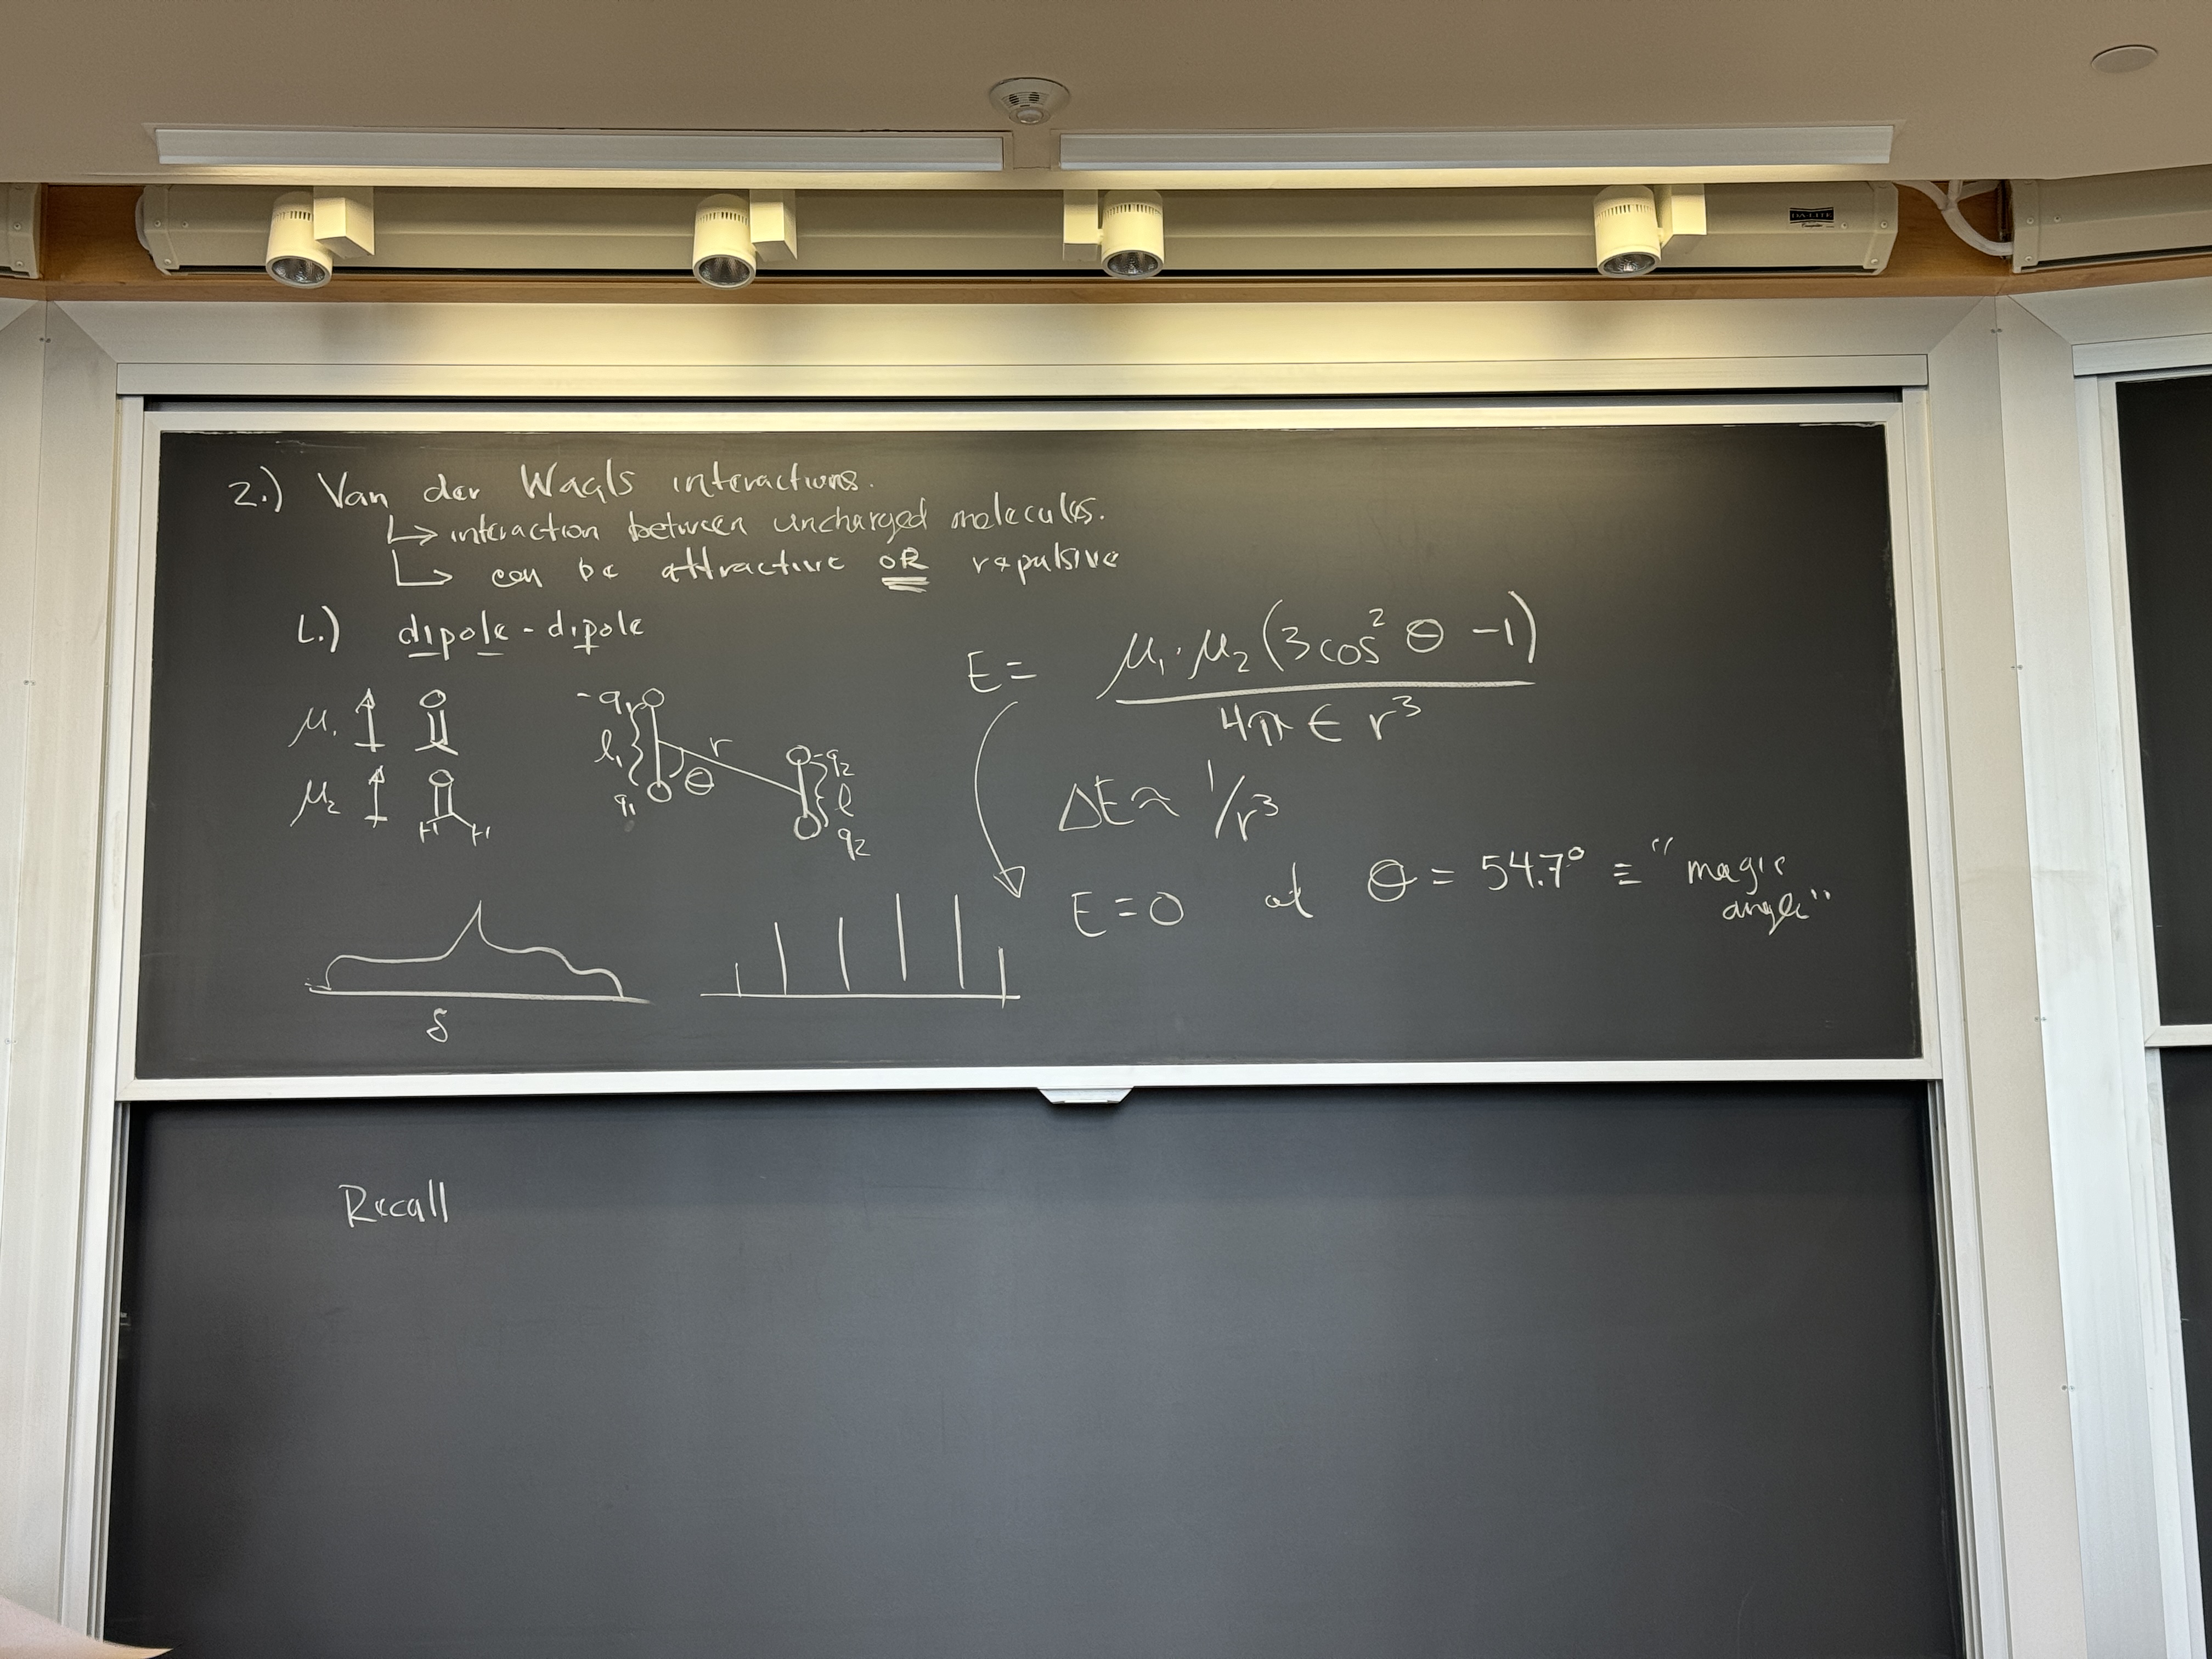 DA-LITE
2.) Van der Waals interactions.
↳ interaction between uncharged molecules.
↳ can be attractive OR repulsive
1.) dipole - dipole
E = μ₁·μ₂(3cos²θ -1) / 4π ∈ r³
μ₁
-q₁
l₁
r
θ
q₁
-q₂
l
q₂
μ₂
H H
ΔE ≈ 1/r³
E = 0 at θ = 54.7° ≡ "magic
angle"
δ
Recall